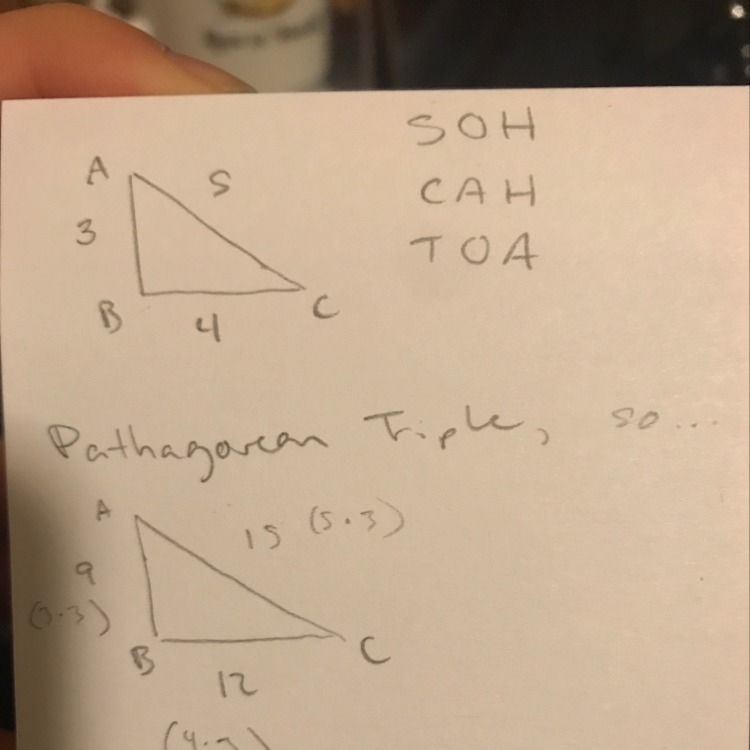 SOH
A 5
CAH
3
TOA
B 4 C
Pathagorean Triple, so...
A
15 (5·3)
9
(3·3)
B C
12